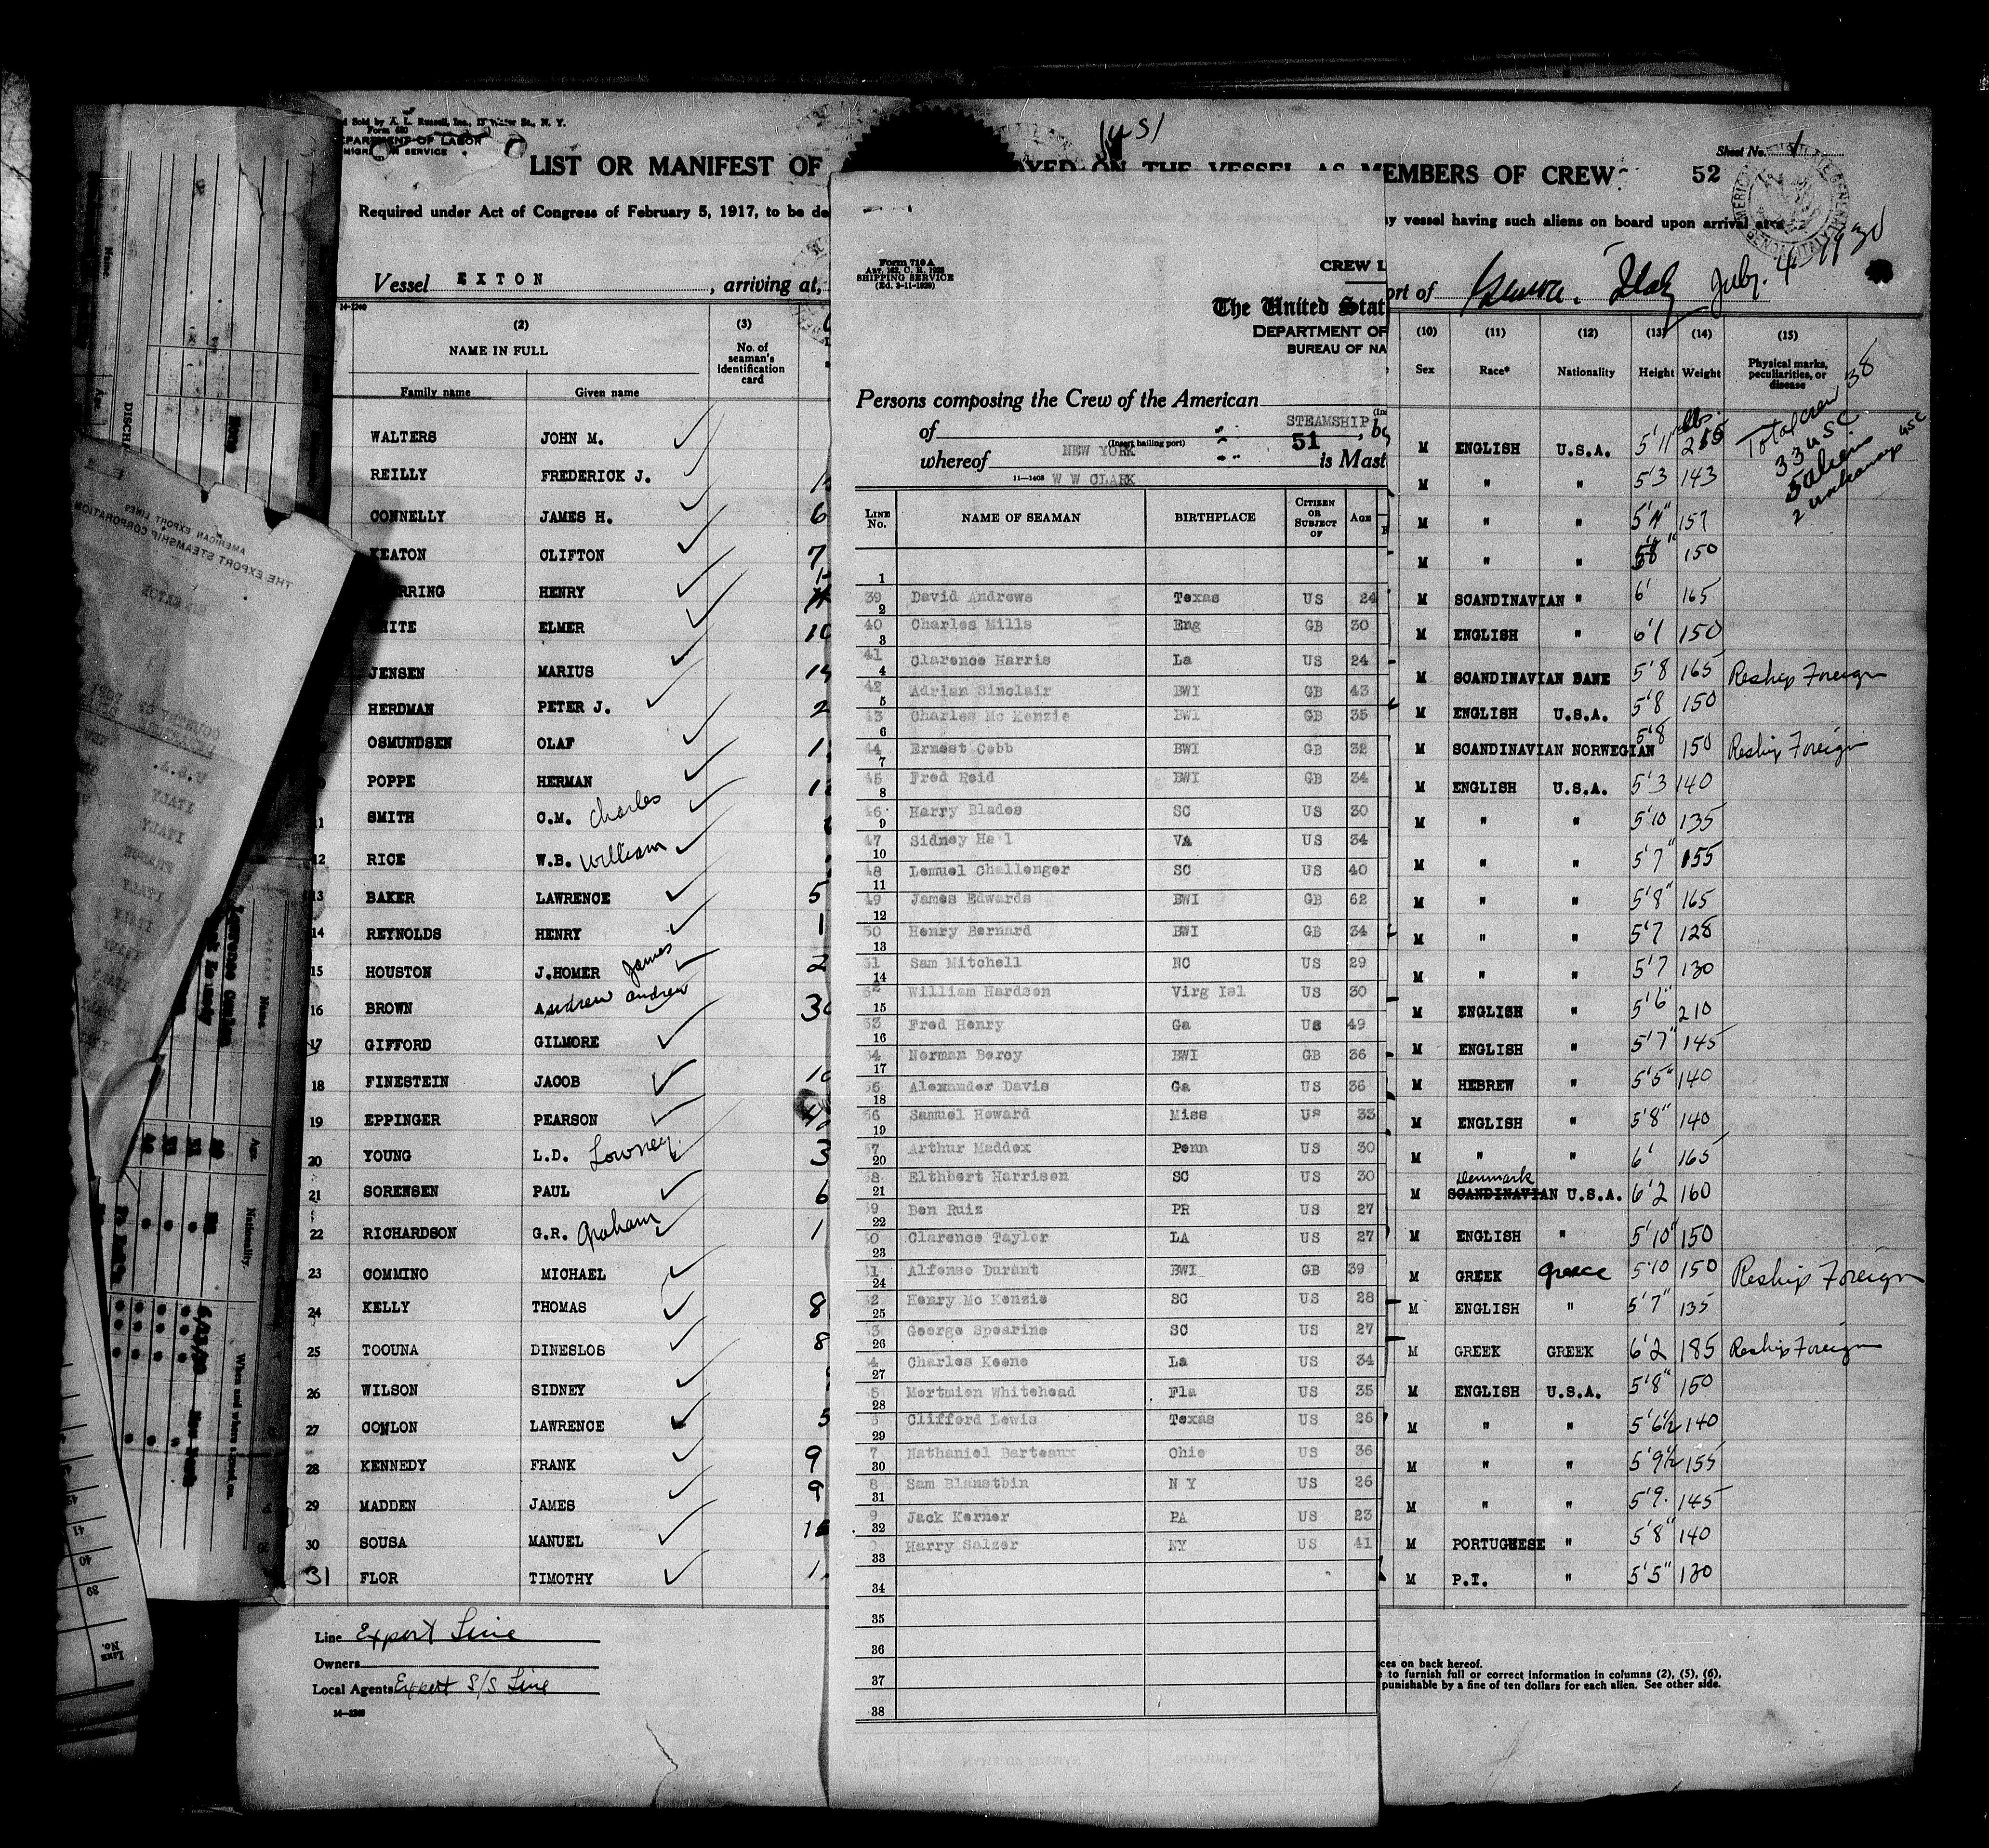 and Sold by A. L. Russell, Inc., 17 Water St., N. Y.
Form 680
DEPARTMENT OF LABOR
IMMIGRATION SERVICE
LIST OR MANIFEST OF
OYED ON THE VESSEL AS MEMBERS OF CREW
52
Sheet No.
Required under Act of Congress of February 5, 1917, to be de
ny vessel having such aliens on board upon arrival at
Vessel EXTON, arriving at,
ort of Genoa, Italy July 4 1930
14-1240
(2) (3)
NAME IN FULL No. of seaman's identification card
Family name Given name
WALTERS JOHN M.
REILLY FREDERICK J.
CONNELLY JAMES H. 6
KEATON CLIFTON 7
RRING HENRY
HITE ELMER 10
JENSEN MARIUS
HERDMAN PETER J. 2
OSMUNDSEN OLAF
POPPE HERMAN
11 SMITH C.M. Charles
12 RICE W.B. William
13 BAKER LAWRENCE 5
14 REYNOLDS HENRY 1
15 HOUSTON J.HOMER James 2
16 BROWN Andrew Andrew 30
17 GIFFORD GILMORE
18 FINESTEIN JACOB 10
19 EPPINGER PEARSON
20 YOUNG L.D. Lowney 3
21 SORENSEN PAUL 6
22 RICHARDSON G.R. Graham 1
23 COMMINO MICHAEL
24 KELLY THOMAS 8
25 TOOUNA DINESLOS 8
26 WILSON SIDNEY
27 CONLON LAWRENCE 5
28 KENNEDY FRANK 9
29 MADDEN JAMES 9
30 SOUSA MANUEL
31 FLOR TIMOTHY 1
Line Export Line
Owners
Local Agents Export S/S Line
14-1240
Form 710 A
Art. 162, C. R. 1923
SHIPPING SERVICE
(Ed. 3-11-1929)
CREW L
The United Stat
DEPARTMENT OF
BUREAU OF NA
Persons composing the Crew of the American
STEAMSHIP
of
(Insert hailing port)
51
NEW YORK
whereof is Mast
11-1408 W W CLARK
LINE No. NAME OF SEAMAN BIRTHPLACE CITIZEN OR SUBJECT OF AGE
1
39 2 David Andrews Texas US 24
40 3 Charles Mills Eng GB 30
41 4 Clarence Harris La US 24
42 5 Adrian Sinclair BWI GB 43
43 6 Charles Mc Kenzie BWI GB 35
44 7 Ernest Cobb BWI GB 32
45 8 Fred Reid BWI GB 34
46 9 Harry Blades SC US 30
47 10 Sidney Ha l VA US 34
48 11 Lemuel Challenger SC US 40
49 12 James Edwards BWI GB 62
50 13 Henry Bernard BWI GB 34
51 14 Sam Mitchell NC US 29
52 15 William Hardson Virg Isl US 30
53 16 Fred Henry Ga US 49
54 17 Norman Bercy BWI GB 36
56 18 Alexander Davis Ga US 36
56 19 Samuel Howard Miss US 33
57 20 Arthur Maddox Penn US 30
58 21 Elthbert Harrison SC US 30
59 22 Ben Ruiz PR US 27
60 23 Clarence Taylor LA US 27
61 24 Alfonso Durant BWI GB 39
62 25 Henry Mc Kenzie SC US 28
63 26 George Spearine SC US 27
4 27 Charles Keene La US 34
5 28 Mortmion Whitehead Fla US 35
29 Clifford Lewis Texas US 26
7 30 Nathaniel Barteaux Ohio US 36
8 31 Sam Blanstbin N Y US 26
9 32 Jack Kerner PA US 23
33 Harry Salzer NY US 41
34
35
36
37
38
(10) (11) (12) (13) (14) (15)
Sex Race* Nationality Height Weight Physical marks, peculiarities, or disease
Total crew 38
33 USC
5 aliens
M ENGLISH U.S.A. 5'11"
M " " 5'3 143
M " " 157
M " " 150
M SCANDINAVIAN " 6' 165
M ENGLISH " 6'1 150
M SCANDINAVIAN DANE 5'8 165 Reship Foreign
M ENGLISH U.S.A. 5'8 150
M SCANDINAVIAN NORWEGIAN 5'8 150 Reship Foreign
M ENGLISH U.S.A. 5'3 140
M " " 5'10 135
M " " 5'7" 155
M " " 5'8" 165
M " " 5'7 128
M " " 5'7 130
M ENGLISH " 5'6" 210
M ENGLISH " 5'7" 145
M HEBREW " 5'5" 140
M ENGLISH " 5'8" 140
M " " 6' 165
Denmark
M SCANDINAVIAN U.S.A. 6'2 160
M ENGLISH " 5'10" 150
M GREEK Greece 5'10 150 Reship Foreign
M ENGLISH " 5'7" 135
M GREEK GREEK 6'2 185 Reship Foreign
M ENGLISH U.S.A. 5'8" 150
M " " 5'6½ 140
M " " 5'9½ 155
M " " 5'9. 145
M PORTUGUESE " 5'8" 140
M P.I. " 5'5" 130
ces on back hereof.
to furnish full or correct information in columns (2), (5), (6),
punishable by a fine of ten dollars for each alien. See other side.
AMERICAN EXPORT LINES
THE EXPORT STEAMSHIP CORPORATION
U.S.A.
ITALY
ITALY
ITALY
ITALY
Name.
Age.
Nationality.
When and where signed on.
Lawrence Conlon
New York